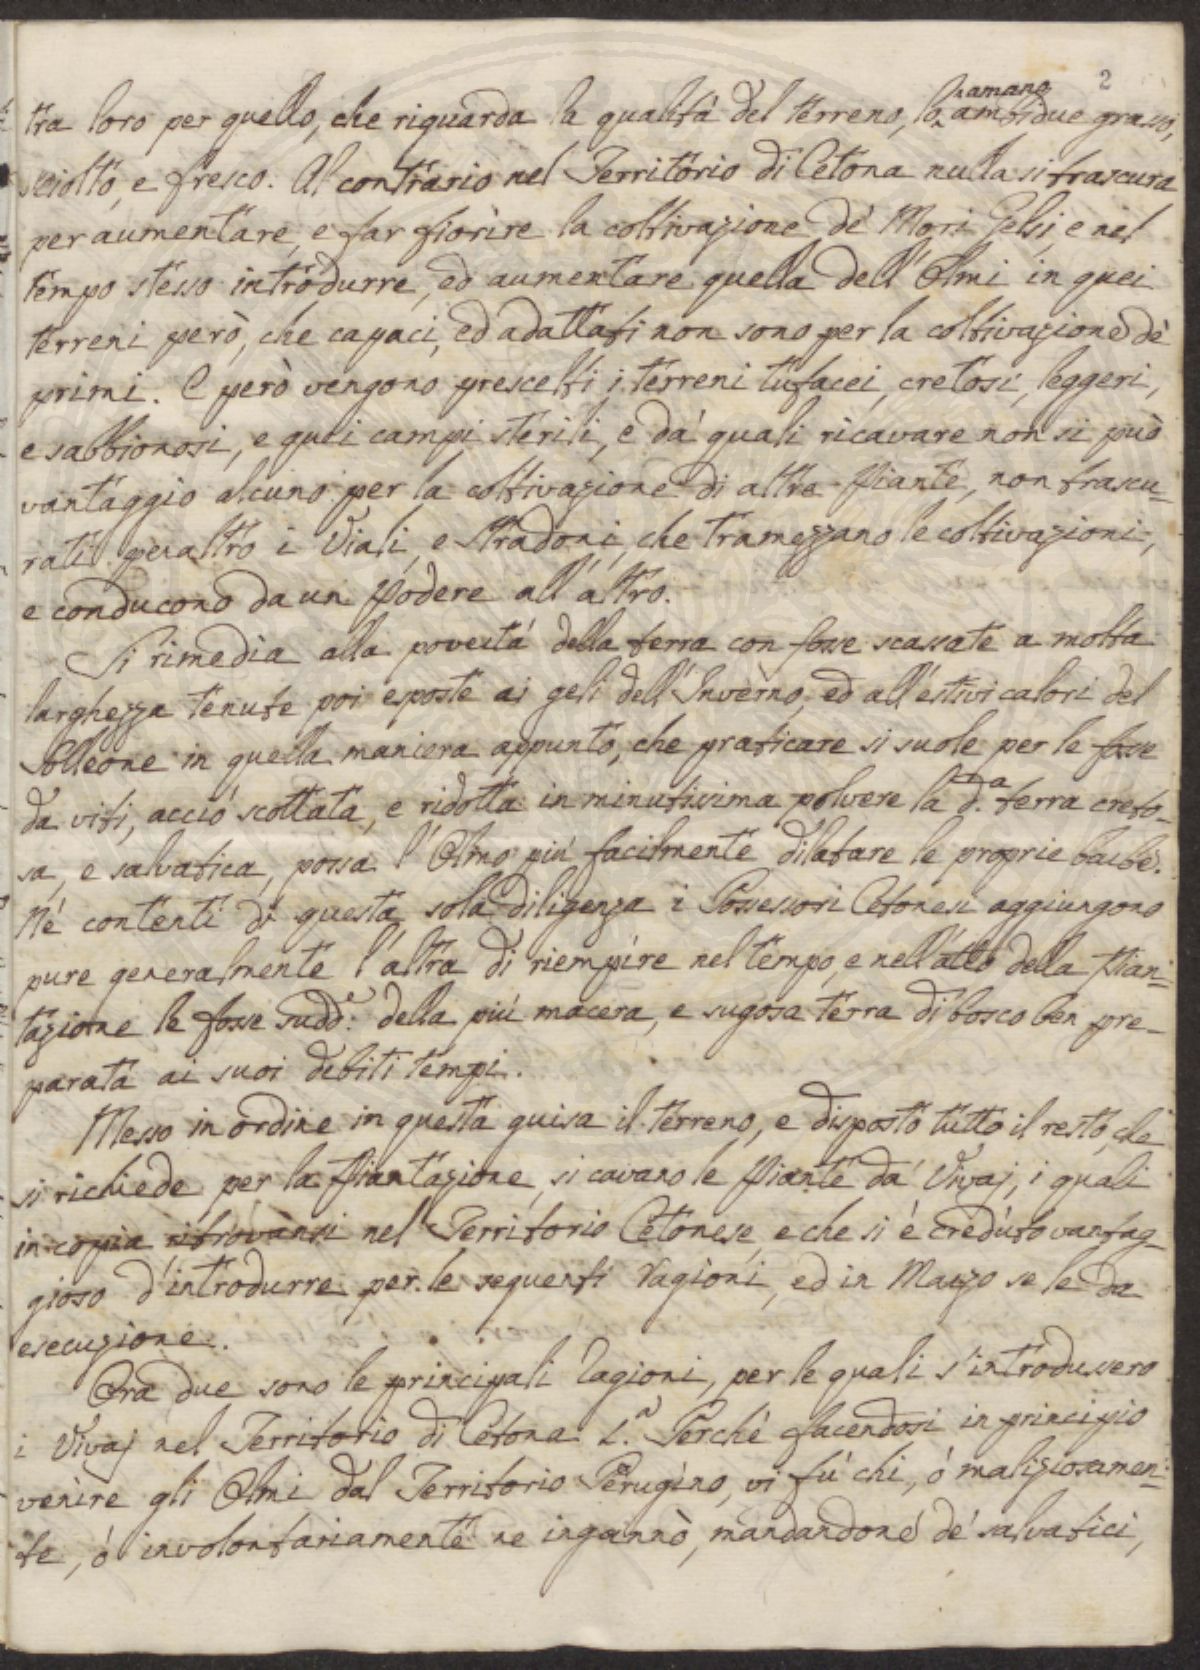 2
tra loro per quello, che riguarda la qualità del terreno, lo amano ambidue grasso,
sciolto, e fresco. Al contrario nel Territorio di Cetona nulla si trascura
per aumentare, e far fiorire la coltivazione de' Mori Gelsi, e nel
tempo stesso introdurre, ed aumentare quella dell'Olmi in quei
terreni però, che capaci, ed adattati non sono per la coltivazione de'
primi. E però vengono prescelti i terreni tufacei, cretosi, leggeri,
e sabbionosi, e quei campi sterili, e da' quali ricavare non si può
vantaggio alcuno per la coltivazione di altre Piante, non trascu=
rati peraltro i Viali, e Stradoni, che tramezzano le coltivazioni,
e conducono da un Podere all'altro.
Si rimedia alla povertà della terra con fosse scassate a molta
larghezza tenute poi esposte ai geli dell'Inverno, ed all'estivi calori del
Solleone in quella maniera appunto, che praticare si suole per le fosse
da viti, acciò scottata, e ridotta in minutissima polvere la d.a terra creto-
sa, e salvatica, possa l'Olmo più facilmente dilatare le proprie barbe.
Né contenti di questa sola diligenza i Possessori Cetonesi aggiungono
pure generalmente l'altra di riempire nel tempo, e nell'atto della Pian=
tazione le fosse sudd.e della più macera, e sugosa terra di bosco ben pre-
parata ai suoi debiti tempi.
Messo in ordine in questa guisa il terreno, e disposto tutto il resto, che
si richiede per la Piantazione, si cavano le Piante da' Vivaj, i quali
in copia ritrovansi nel Territorio Cetonese, e che si è creduto vantag-
gioso d'introdurre per le seguenti ragioni, ed in Marzo se le da
esecuzione.
Ora due sono le principali ragioni, per le quali s'introdussero
i Vivaj nel Territorio di Cetona 1.a Perché facendosi in principio
venire gli Olmi dal Territorio Perugino, vi fù chi, ò maliziosamen=
te, ò involontariamente ne ingannò, mandandone de' salvatici,